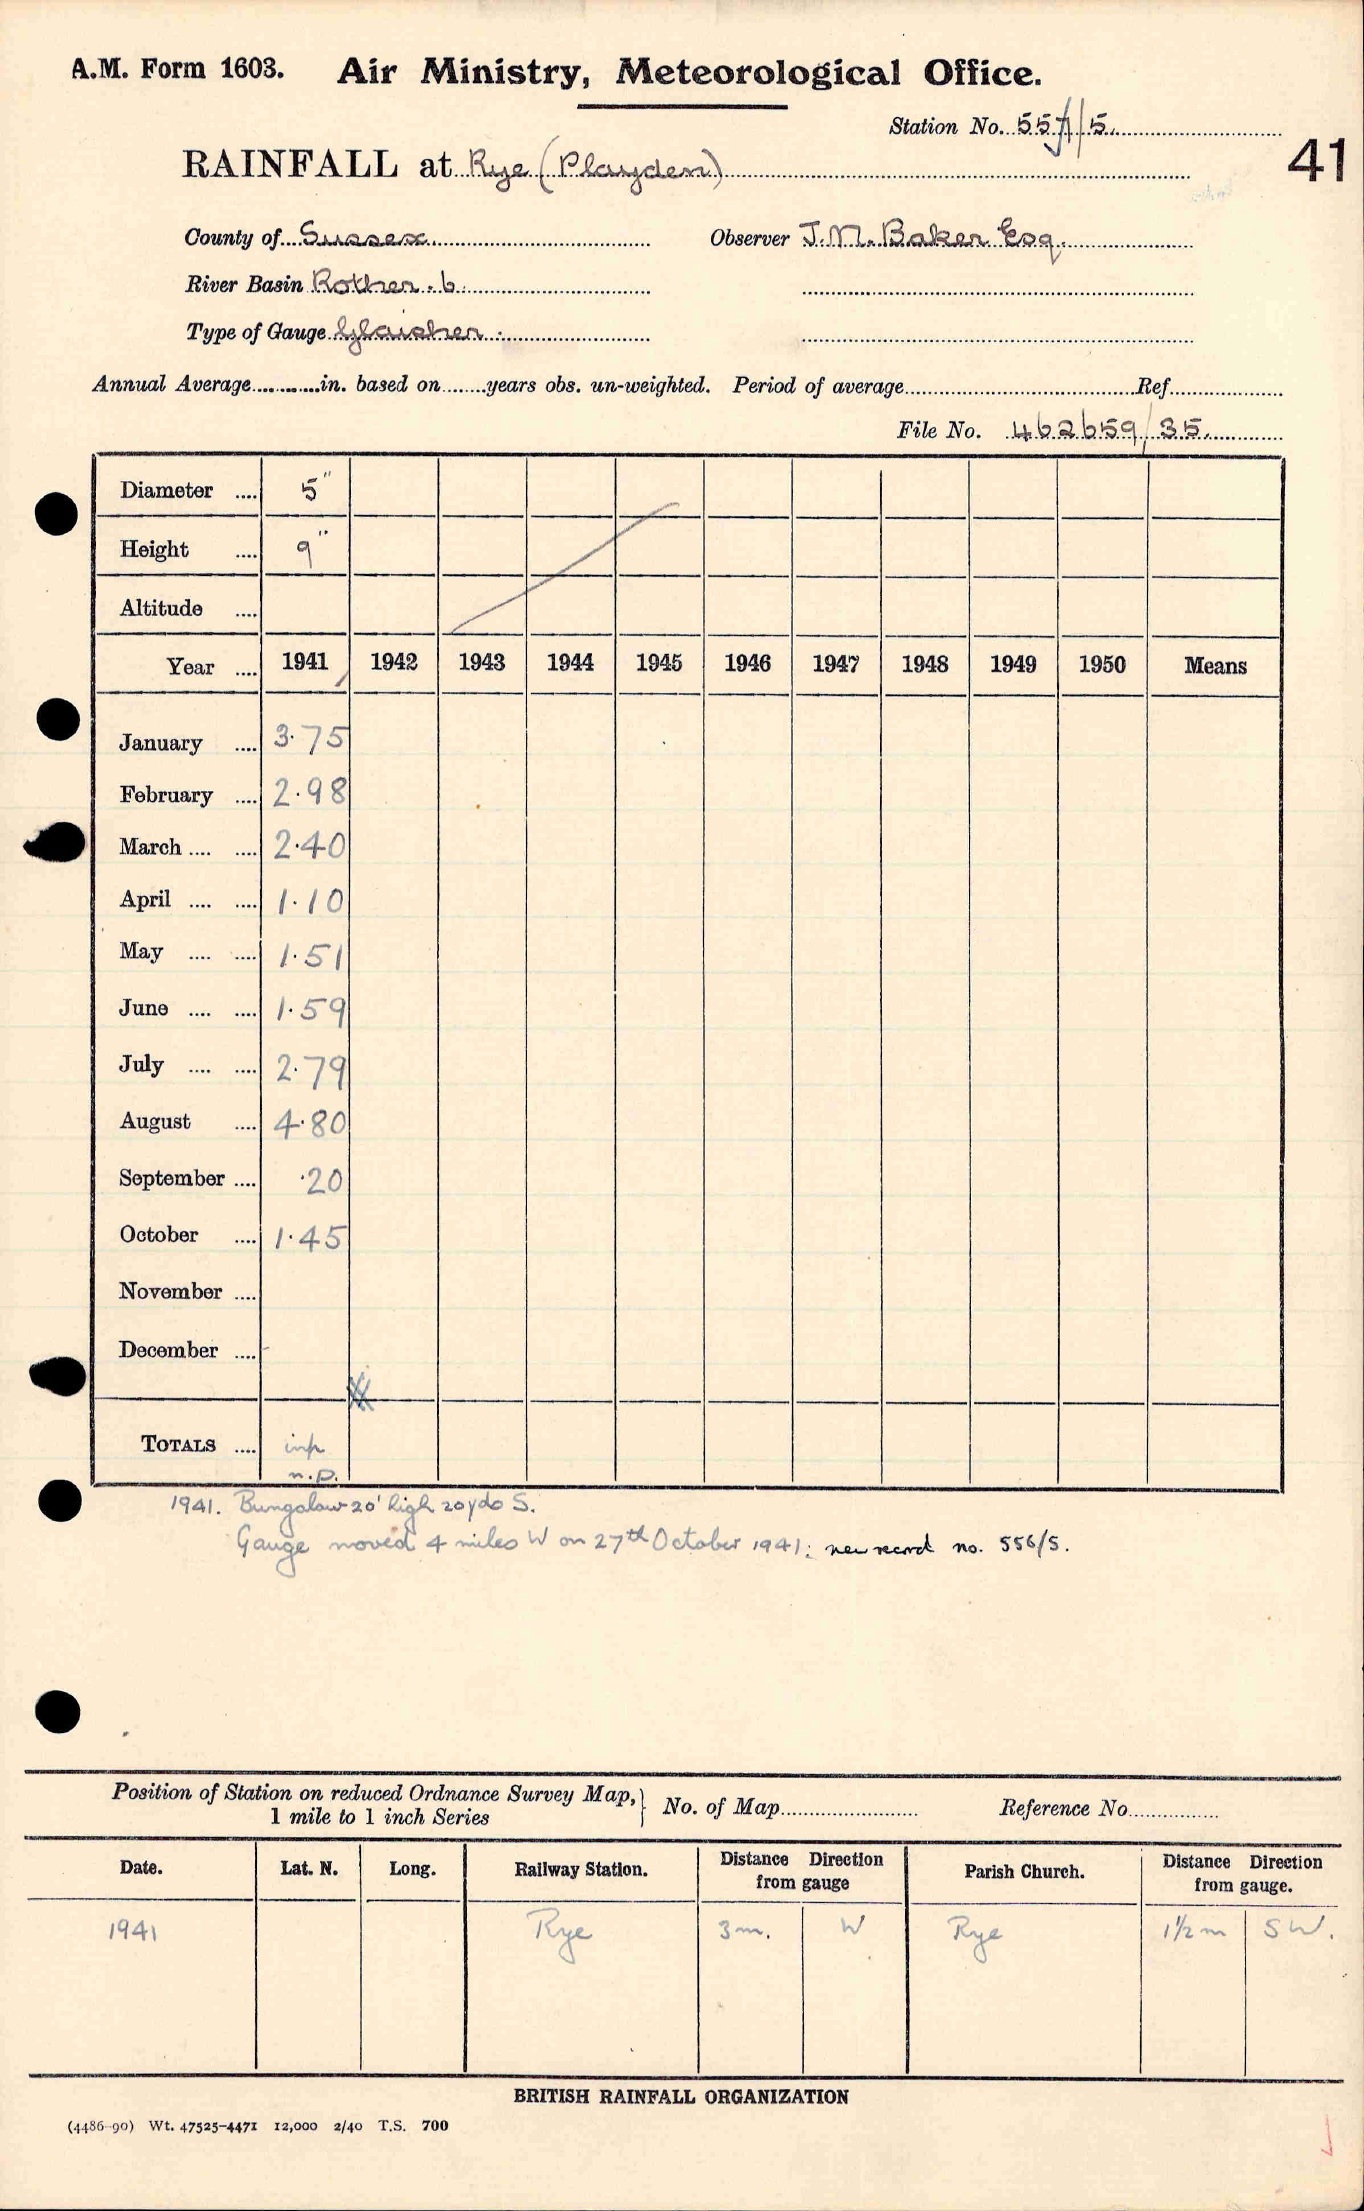 A.M. Form 1603. Air Ministry, Meteorological Office.
Station No. 557/5.
41
RAINFALL at Rye (Playden)
County of Sussex. Observer J.M. Baker Esq.
River Basin Rother. 6.
Type of Gauge Glaisher.
Annual Average............in. based on........years obs. un-weighted. Period of average........ Ref........
File No. 462659/35.
Diameter .... 5"
Height .... 9"
Altitude ....
Year .... 1941 1942 1943 1944 1945 1946 1947 1948 1949 1950 Means
January .... 3.75
February .... 2.98
March .... .... 2.40
April .... .... 1.10
May .... .... 1.51
June .... .... 1.59
July .... .... 2.79
August .... 4.80
September .... .20
October .... 1.45
November ....
December ....
TOTALS .... inp
n.p.
1941. Bungalow 20' high 20 yds S.
Gauge moved 4 miles W on 27th October 1941: new record no. 556/5.
Position of Station on reduced Ordnance Survey Map, } No. of Map........ Reference No........
1 mile to 1 inch Series
Date. Lat. N. Long. Railway Station. Distance Direction from gauge Parish Church. Distance Direction from gauge.
1941 Rye 3m. W Rye 1½ m S W.
BRITISH RAINFALL ORGANIZATION
(4486-90) Wt. 47525-4471 12,000 2/40 T.S. 700